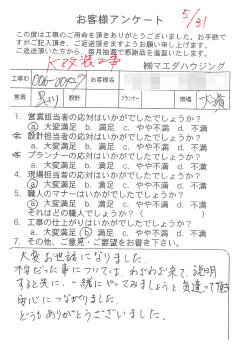 お客様アンケート
5/31
この度は工事のご用命を頂きありがとうございました。お手数で
すがご記入頂き、ご返送頂きますようお願い申し上げます。
ご返送頂いた方から、毎月抽選で感謝品を進呈いたします。
㈱マエダハウジング
K改装工事
工事ID
お客様名
営業
設計
プランナー
現場
1. 営業担当者の応対はいかがでしたでしょうか?
a 大変満足 b. 満足 c. やや不満 d. 不満
2. 設計担当者の応対はいかがでしたでしょうか?
a 大変満足 b. 満足 c. やや不満 d. 不満
3. プランナーの応対はいかがでしたでしょうか?
a. 大変満足 b. 満足 c. やや不満 d. 不満
4. 現場担当者の応対はいかがでしたでしょうか?
a 大変満足 b. 満足 c. やや不満 d. 不満
5. 職人のマナーはいかがでしたでしょうか?
a 大変満足 b. 満足 c. やや不満 d. 不満
それはどの職人でしょうか? ( )
6. 工事の仕上がりはいかがでしたでしょうか?
a. 大変満足 b 満足 c. やや不満 d. 不満
7. その他、ご意見・ご要望をお書き下さい。
大変お世話になりました。
不安だった事については、わざわざ来て、説明
すると共に、一緒にやってみましょうと気遣って頂き
安心につながりました。
どうもありがとうございました。